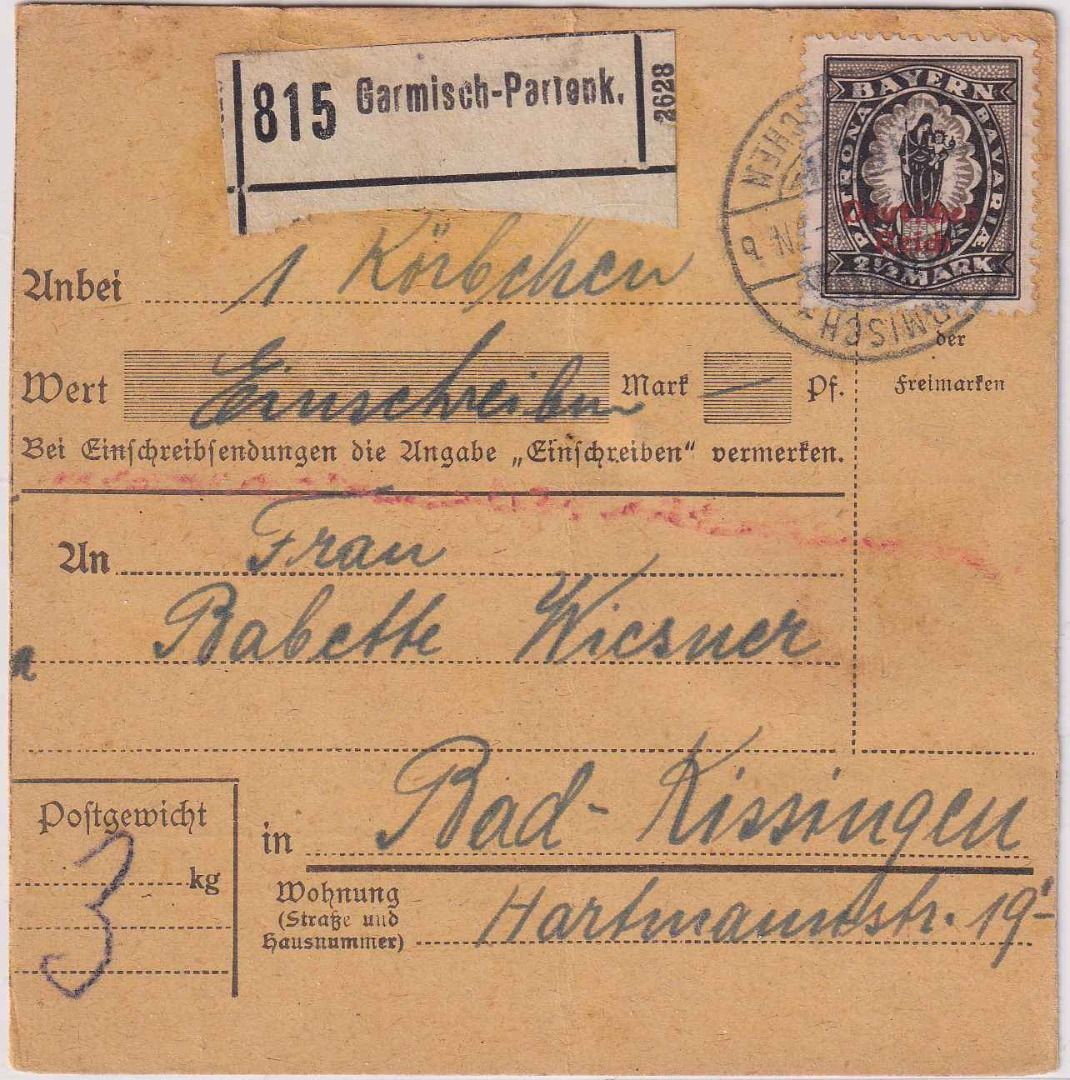 815 Garmisch-Partenk.
2628
BAYERN
PATRONA BAVARIAE
Deutsches
Reich
2½ MARK
Anbei 1 Körbchen
Wert Einschreiben Mark — Pf.
der
Freimarken
Bei Einschreibsendungen die Angabe „Einschreiben" vermerken.
An Frau
Babette Wiesner
Postgewicht
3 kg
in Bad-Kissingen
Wohnung
(Straße und
Hausnummer) Hartmannstr. 19